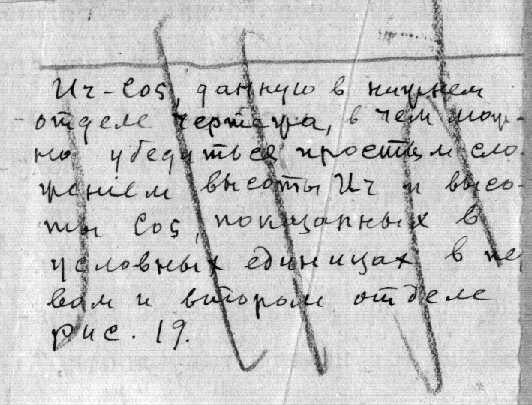 Ич-Cos, данную в нижнем
отделе чертежа, в чем мож-
но убедиться простым сло-
жением высоты Ич и высо-
ты Cos, показанных в
условных единицах в пе
вом и втором отделе
рис. 19.